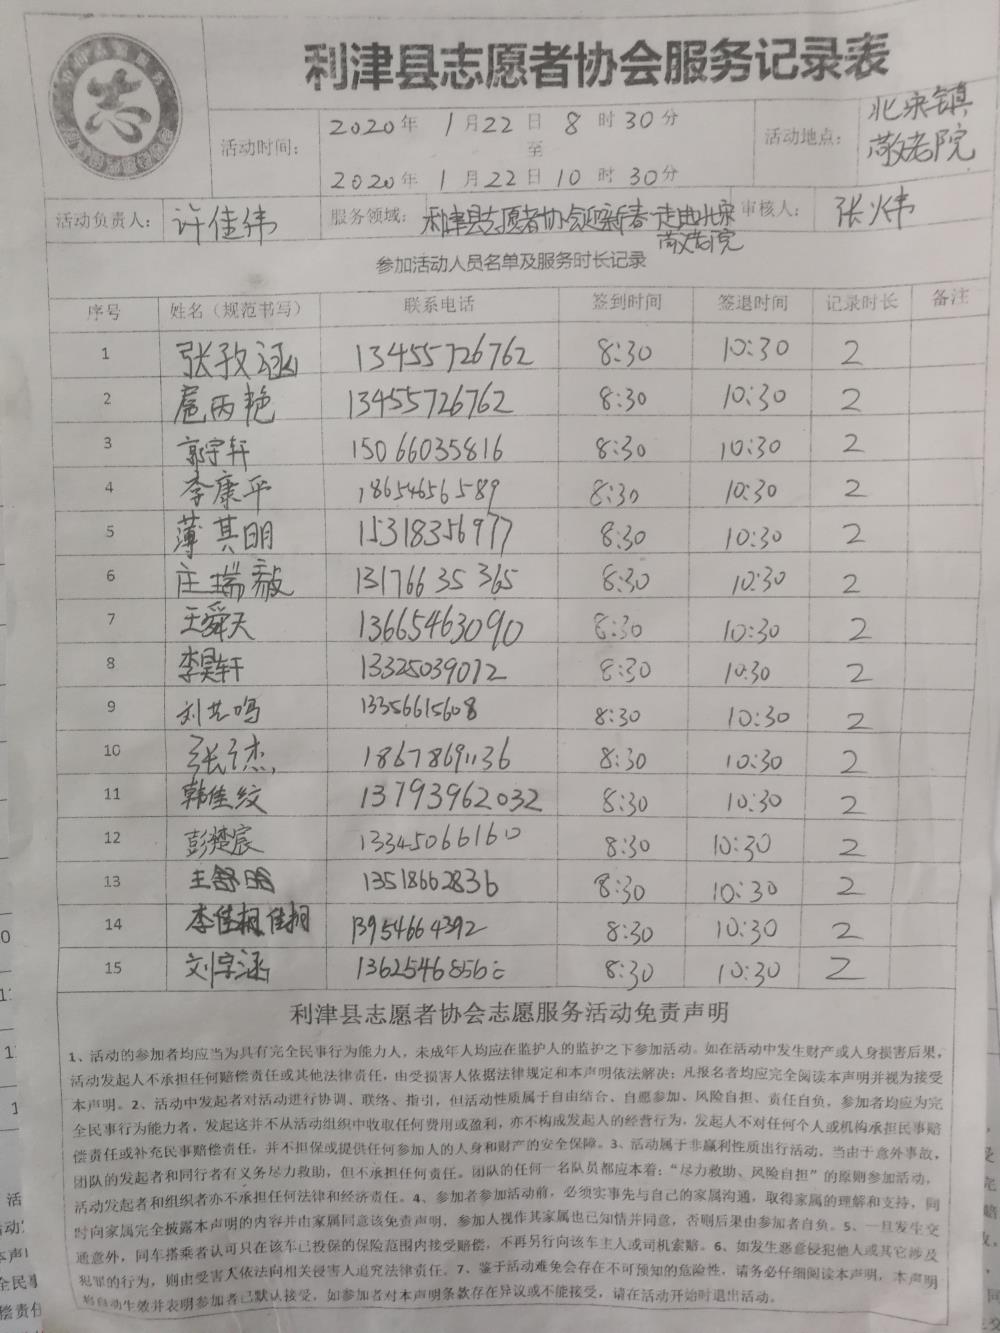 利津县志愿者协会服务记录表
志
活动时间：
2020年 1月22日 8时30分
至
2020年 1月22日10时30分
活动地点：
北宋镇
敬老院
活动负责人：
许佳纬
服务领域：
利津县志愿者协会迎新春 走进北宋
敬老院
审核人：
张火韦
参加活动人员名单及服务时长记录
序号 姓名（规范书写） 联系电话 签到时间 签退时间 记录时长 备注
1 张孜涵 13455726762 8:30 10:30 2
2 扈丙艳 13455726762 8:30 10:30 2
3 郭宇轩 15066035816 8:30 10:30 2
4 李康平 18654656589 8:30 10:30 2
5 薄其明 15318356977 8:30 10:30 2
6 庄瑞毅 13176635365 8:30 10:30 2
7 王舜天 13665463090 8:30 10:30 2
8 李昊轩 13325039012 8:30 10:30 2
9 刘艺鸣 13356615608 8:30 10:30 2
10 张 杰 18678691136 8:30 10:30 2
11 韩佳纹 13793962032 8:30 10:30 2
12 彭楚宸 13345066160 8:30 10:30 2
13 王舒 13518662836 8:30 10:30 2
14 李佳桐佳桐 13954664392 8:30 10:30 2
15 刘宇涵 1362546856 8:30 10:30 2
利津县志愿者协会志愿服务活动免责声明
1、活动的参加者均应当为具有完全民事行为能力人，未成年人均应在监护人的监护之下参加活动。如在活动中发生财产或人身损害后果，
活动发起人不承担任何赔偿责任或其他法律责任，由受损害人依据法律规定和本声明依法解决；凡报名者均应完全阅读本声明并视为接受
本声明。2、活动中发起者对活动进行协调、联络、指引，但活动性质属于自由结合、自愿参加、风险自担、责任自负，参加者均应为完
全民事行为能力者，发起这并不从活动组织中收取任何费用或盈利，亦不构成发起人的经营行为，发起人不对任何个人或机构承担民事赔
偿责任或补充民事赔偿责任，并不担保或提供任何参加人的人身和财产的安全保障。3、活动属于非赢利性质出行活动，当由于意外事故，
团队的发起者和同行者有义务尽力救助，但不承担任何责任。团队的任何一名队员都应本着：“尽力救助、风险自担”的原则参加活动，
活动发起者和组织者亦不承担任何法律和经济责任。4、参加者参加活动前，必须实事先与自己的家属沟通，取得家属的理解和支持，同
时向家属完全披露本声明的内容并由家属同意该免责声明，参加人视作其家属也已知情并同意，否则后果由参加者自负。5、一旦发生交
通意外，同车搭乘者认可只在该车已投保的保险范围内接受赔偿，不再另行向该车主人或司机索赔。6、如发生恶意侵犯他人或其它涉及
犯罪的行为，则由受害人依法向相关侵害人追究法律责任。7、鉴于活动难免会存在不可预知的危险性，请务必仔细阅读本声明，本声明
将自动生效并表明参加者已默认接受，如参加者对本声明条款存在异议或不能接受，请在活动开始时退出活动。